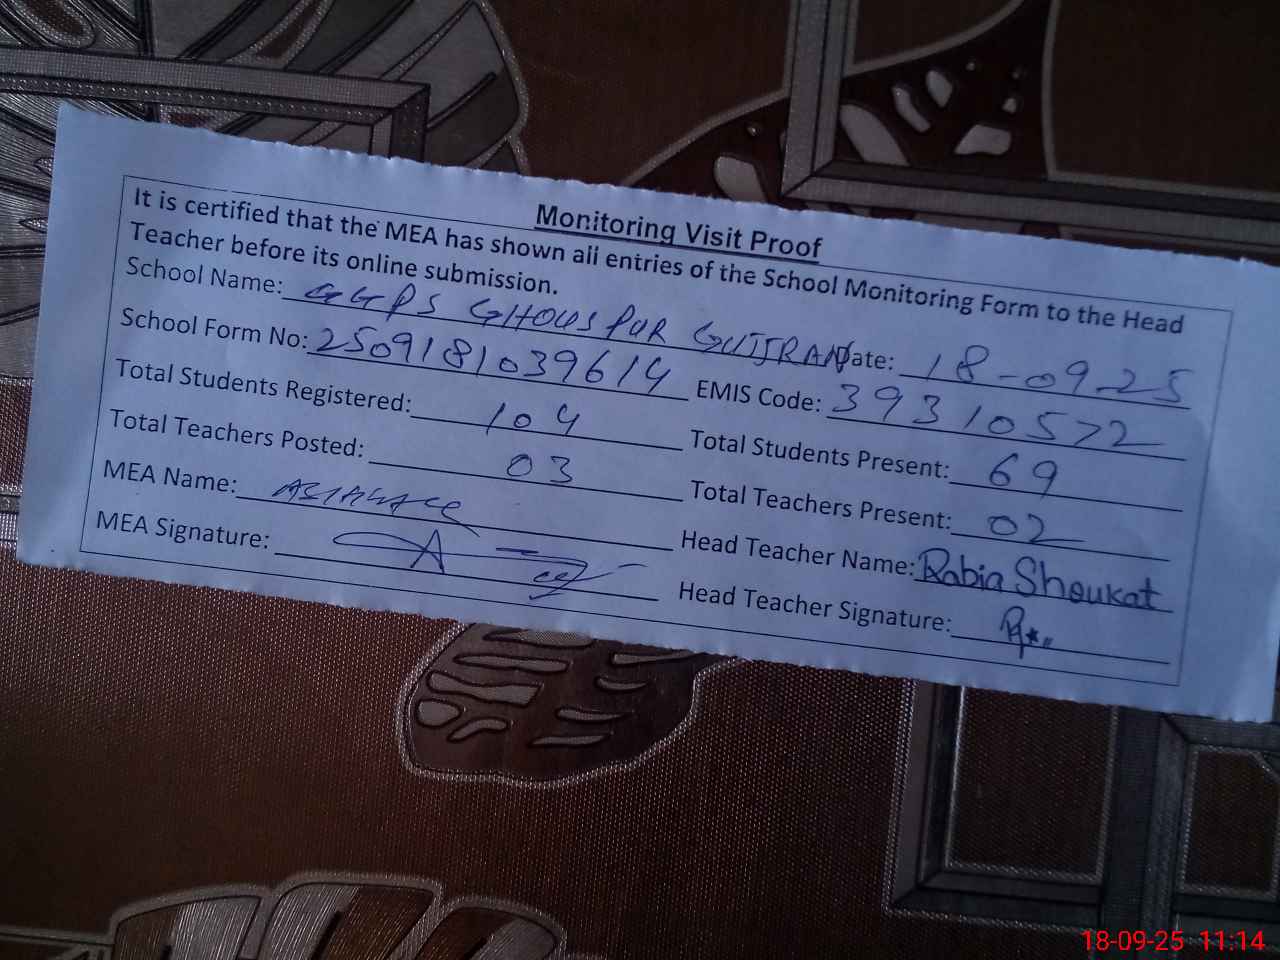 Monitoring Visit Proof
It is certified that the MEA has shown all entries of the School Monitoring Form to the Head
Teacher before its online submission.
School Name: GGPS GHOUS PUR GUJJRAN Date: 18-09-25
School Form No: 2509181039614 EMIS Code: 39310572
Total Students Registered: 104 Total Students Present: 69
Total Teachers Posted: 03 Total Teachers Present: 02
MEA Name: Head Teacher Name: Rabia Shoukat
MEA Signature: Head Teacher Signature:
18-09-25 11:14